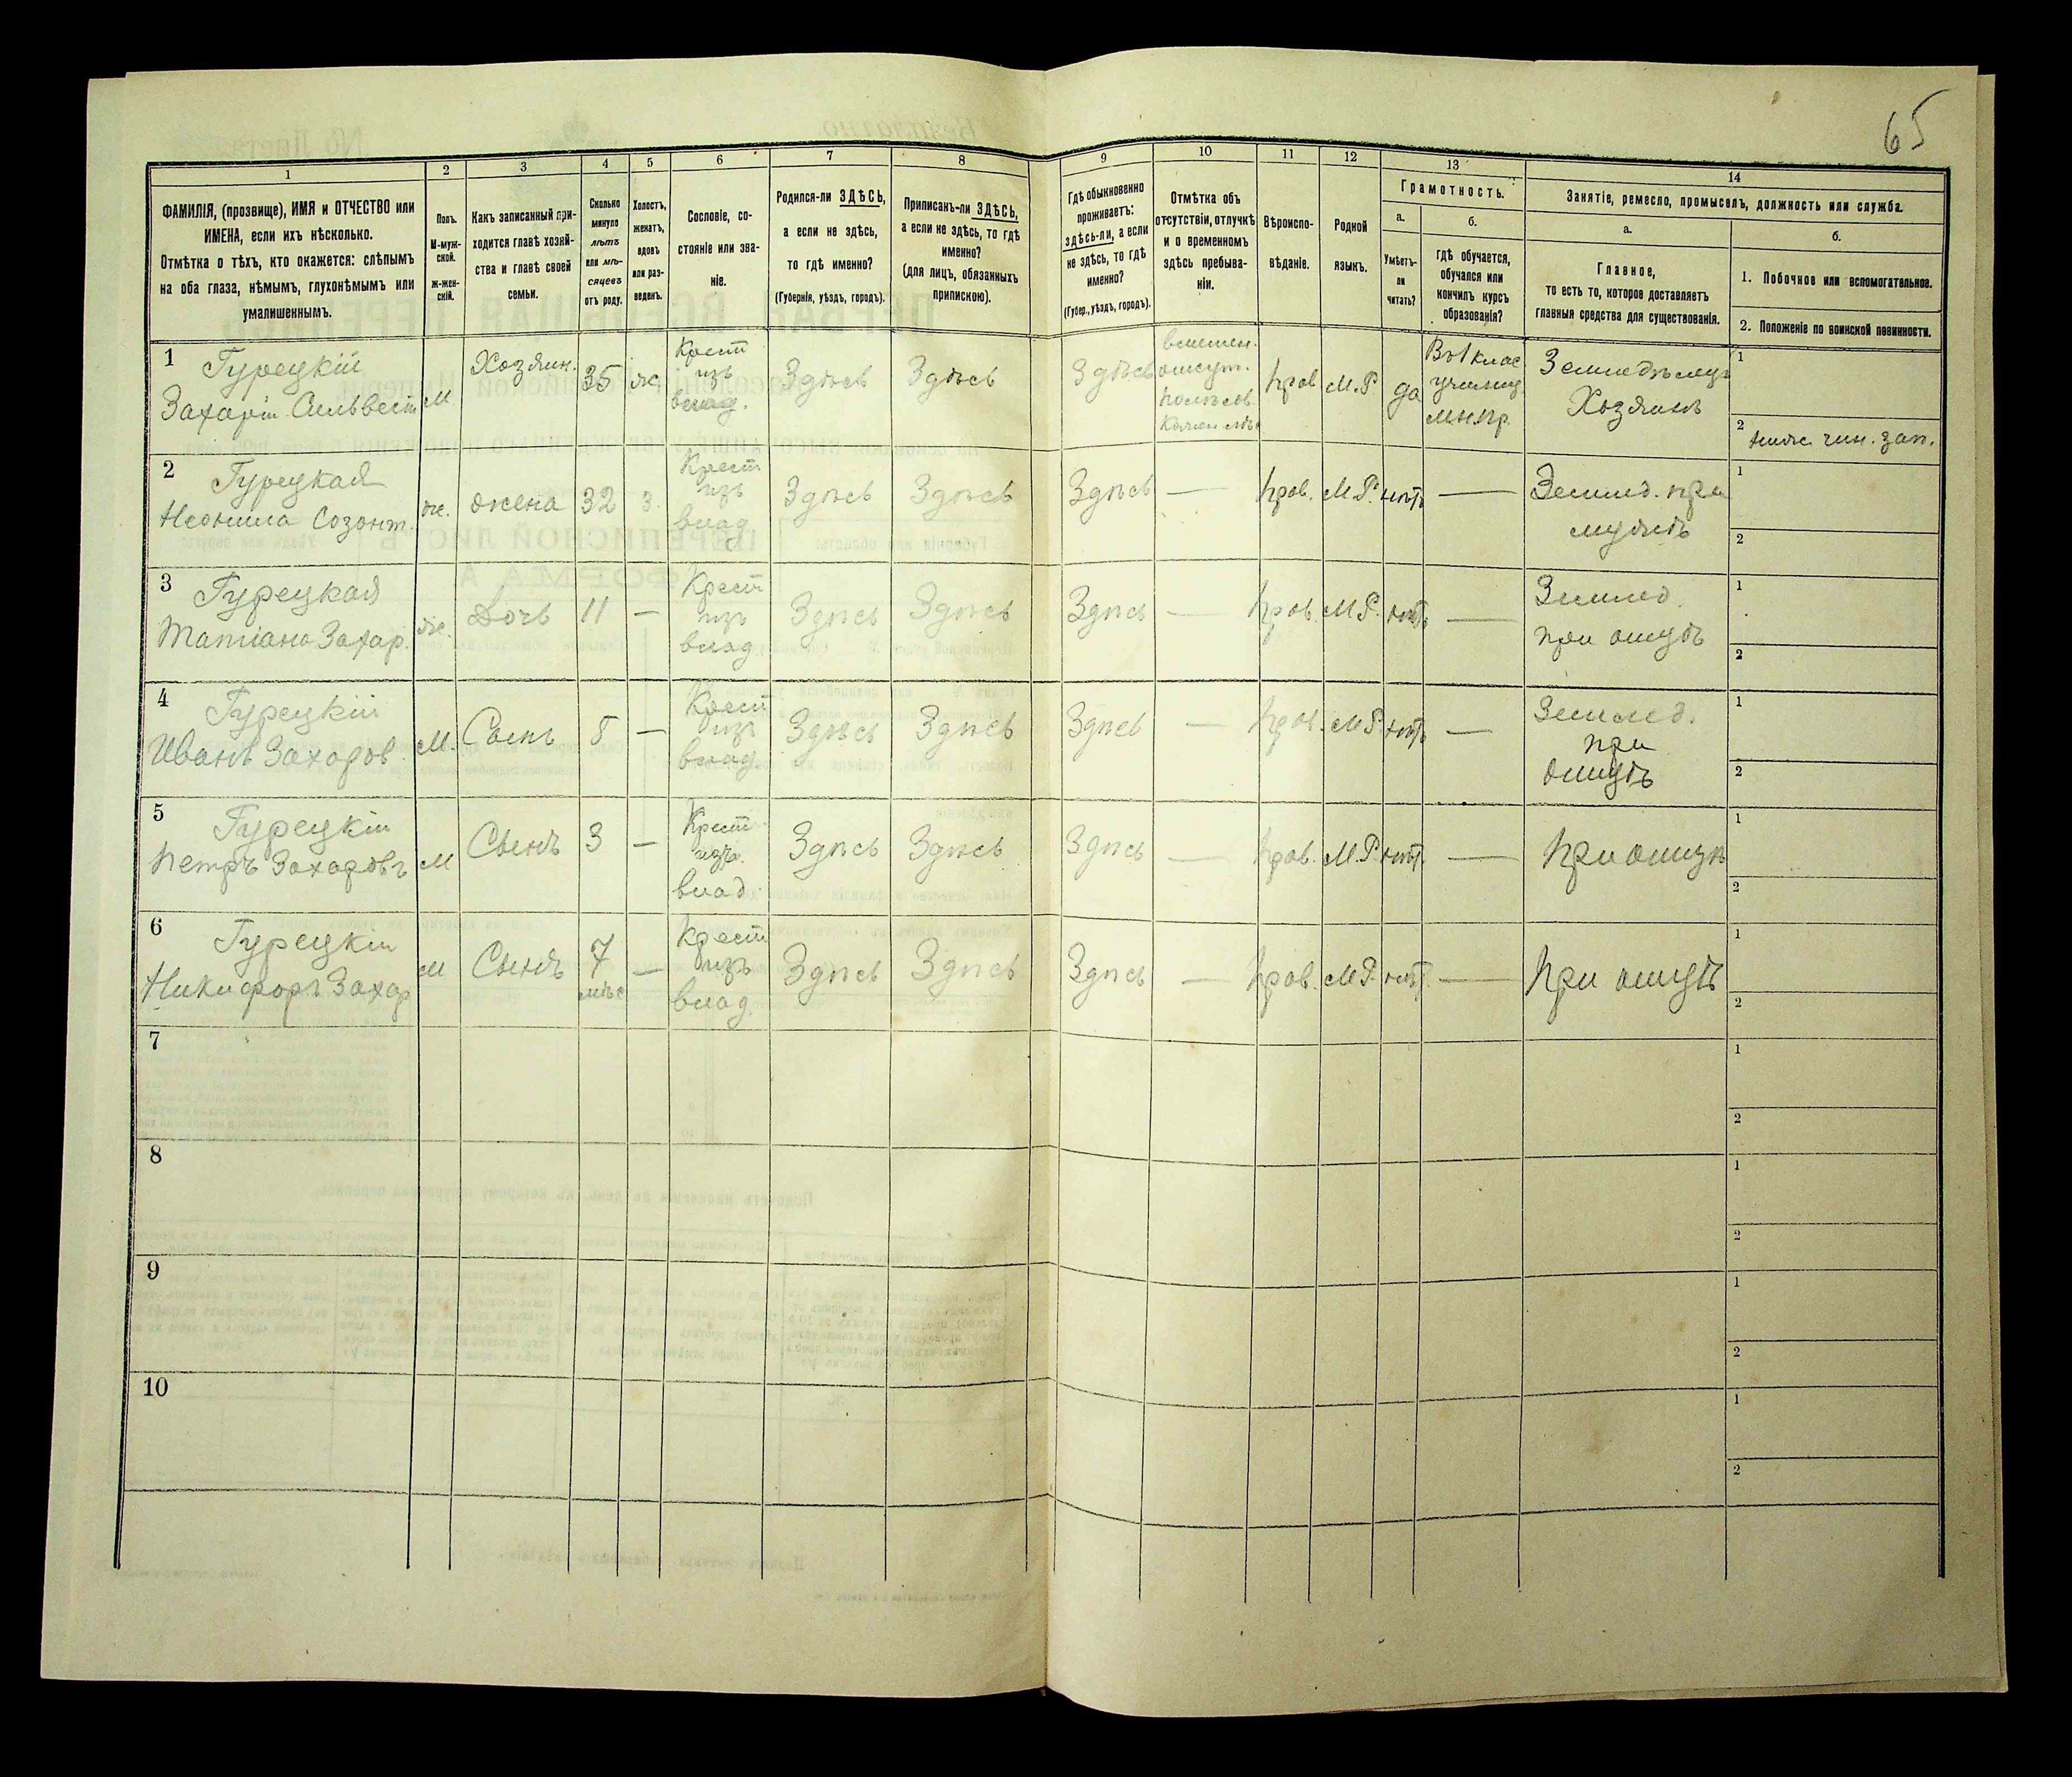 65
1
2
3
4
5
6
7
8
9
10
11
12
13
14
ФАМИЛІЯ, (прозвище), ИМЯ и ОТЧЕСТВО или
ИМЕНА, если ихъ нѣсколько.
Отмѣтка о тѣхъ, кто окажется: слѣпымъ
на оба глаза, нѣмымъ, глухонѣмымъ или
умалишеннымъ.
Полъ.
М-муж-
ской.
Ж-жен-
скій.
Какъ записанный при-
ходится главѣ хозяй-
ства и главѣ своей
семьи.
Сколько
минуло
лѣтъ
или мѣ-
сяцевъ
отъ роду.
Холостъ,
женатъ,
вдовъ
или раз-
веденъ.
Сословіе, со-
стояніе или зва-
ніе.
Родился-ли ЗДѢСЬ,
а если не здѣсь,
то гдѣ именно?
(Губернія, уѣздъ, городъ).
Приписанъ-ли ЗДѢСЬ,
а если не здѣсь, то гдѣ
именно?
(для лицъ, обязанныхъ
припискою).
Гдѣ обыкновенно
проживаетъ:
здѣсь-ли, а если
не здѣсь, то гдѣ
именно?
(Губер., уѣздъ, городъ).
Отмѣтка объ
отсутствіи, отлучкѣ
и о временномъ
здѣсь пребыва-
ніи.
Вѣроиспо-
вѣданіе.
Родной
языкъ.
Грамотность.
а.
Умѣетъ-
ли
читать?
б.
гдѣ обучается,
обучался или
кончилъ курсъ
образованія?
Занятіе, ремесло, промыселъ, должность или служба.
а.
Главное,
то есть то, которое доставляетъ
главныя средства для существованія.
б.
1. Побочное или вспомогательное.
2. Положеніе по воинской повинности.
1 Гурецкій
Захарій Сильвест
м
Хозяин.
35
же
Крест
изъ
влад.
Здѣсь
Здѣсь
Здѣсь
Прав
М.Р.
да
Въ 1 клас
училищ
мн.пр.
Земледѣлецъ
Хозяинъ
1
2 нижн. чин. зап.
2 Гурецкая
Неонила Созонт.
же.
жена
32
з.
Крест
изъ
влад
Здѣсь
Здѣсь
Здѣсь
—
Прав.
М.Р.
нѣтъ
—
Землед. при
мужѣ
1
2
3 Гурецкая
Татіана Захар.
же.
Дочь
11
—
Крест
изъ
влад
Здѣсь
Здѣсь
Здѣсь
—
Прав.
М.Р.
нѣтъ
—
Землед.
при отцѣ
1
2
4 Гурецкій
Иванъ Захаров.
М.
Сынъ
8
—
Крест
изъ
влад
Здѣсь
Здѣсь
Здѣсь
—
Прав.
М.Р.
нѣтъ
—
Землед.
при
отцѣ
1
2
5 Гурецкій
Петръ Захаровъ
М
Сынъ
3
—
Крест
изъ
влад.
Здѣсь
Здѣсь
Здѣсь
—
Прав.
М.Р.
нѣт.
—
При отцѣ
1
2
6 Гурецкій
Никифоръ Захар
м
Сынъ
7
мѣс
—
Крест
изъ
влад.
Здѣсь
Здѣсь
Здѣсь
—
Прав.
М.Р.
нѣт.
—
При отцѣ
1
2
7
1
2
8
1
2
9
1
2
10
1
2